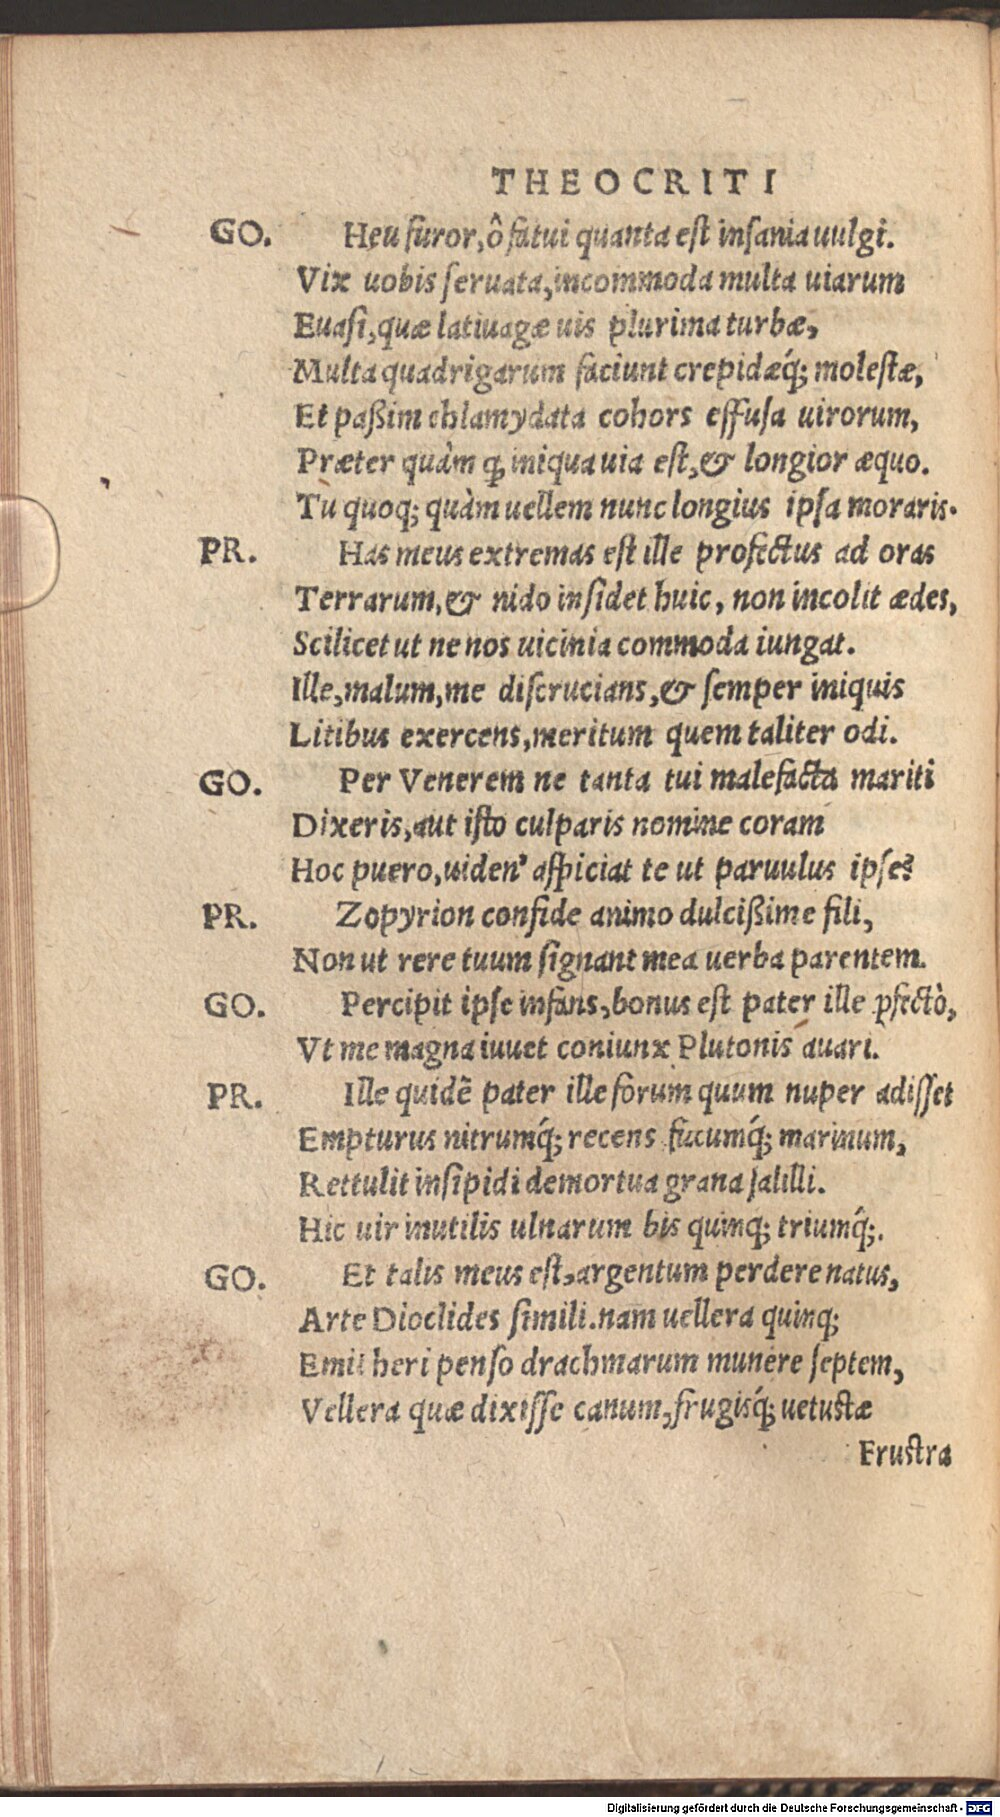 THEOCRITI
GO. Heu furor, ô fatui quanta est insania uulgi.
Vix uobis seruata, incommoda multa uiarum
Euasi, quæ latiuagæ uis plurima turbæ,
Multa quadrigarum faciunt crepidæq́; molestæ,
Et paßim chlamydata cohors effusa uirorum,
Præter quàm ꝙ iniqua uia est, & longior æquo.
Tu quoq; quàm uellem nunc longius ipsa moraris.
PR. Has meus extremas est ille profectus ad oras
Terrarum, & nido insidet huic, non incolit ædes,
Scilicet ut ne nos uicinia commoda iungat.
Ille, malum, me discrucians, & semper iniquis
Litibus exercens, meritum quem taliter odi.
GO. Per Venerem ne tanta tui malefacta mariti
Dixeris, aut isto culparis nomine coram
Hoc puero, uiden' aspiciat te ut paruulus ipse?
PR. Zopyrion confide animo dulcißime fili,
Non ut rere tuum signant mea uerba parentem.
GO. Percipit ipse infans, bonus est pater ille ꝓfectò,
Vt me magna iuuet coniunx Plutonis auari.
PR. Ille quidẽ pater ille forum quum nuper adisset
Empturus nitrumq́; recens fucumq́; marinum,
Rettulit insipidi demortua grana salilli.
Hic uir inutilis ulnarum bis quinq; triumq́;.
GO. Et talis meus est, argentum perdere natus,
Arte Dioclides simili. nam uellera quinq;
Emit heri penso drachmarum munere septem,
Vellera quæ dixisse canum, frugisq́; uetustæ
Frustra
Digitalisierung gefördert durch die Deutsche Forschungsgemeinschaft - DFG